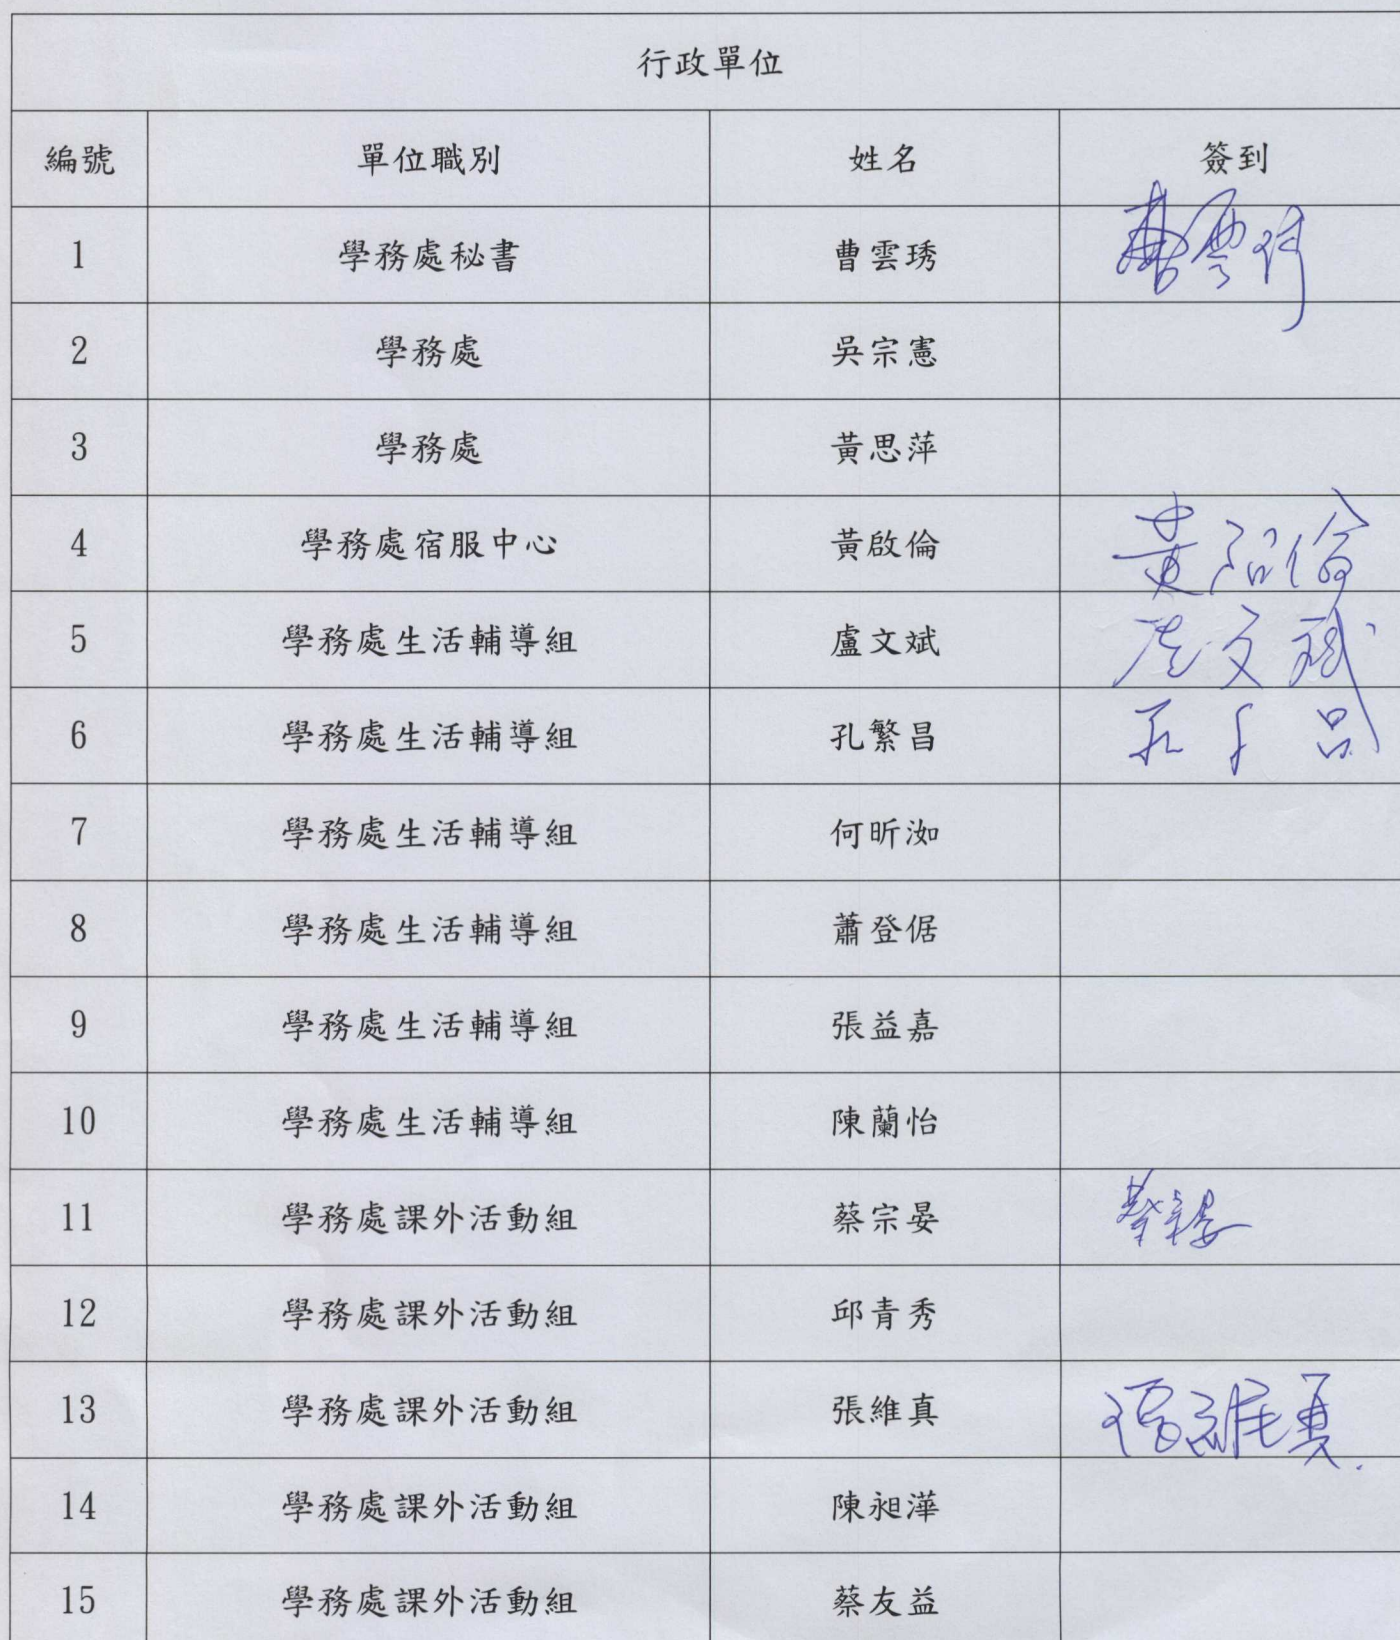 行政單位
編號 單位職別 姓名 簽到
1 學務處秘書 曹雲琇 曹雲琇
2 學務處 吳宗憲
3 學務處 黃思萍
4 學務處宿服中心 黃啟倫 黃啟倫
5 學務處生活輔導組 盧文斌 文斌
6 學務處生活輔導組 孔繁昌 孔 昌
7 學務處生活輔導組 何昕洳
8 學務處生活輔導組 蕭登倨
9 學務處生活輔導組 張益嘉
10 學務處生活輔導組 陳蘭怡
11 學務處課外活動組 蔡宗晏 蔡宗晏
12 學務處課外活動組 邱青秀
13 學務處課外活動組 張維真 張維真
14 學務處課外活動組 陳昶澕
15 學務處課外活動組 蔡友益